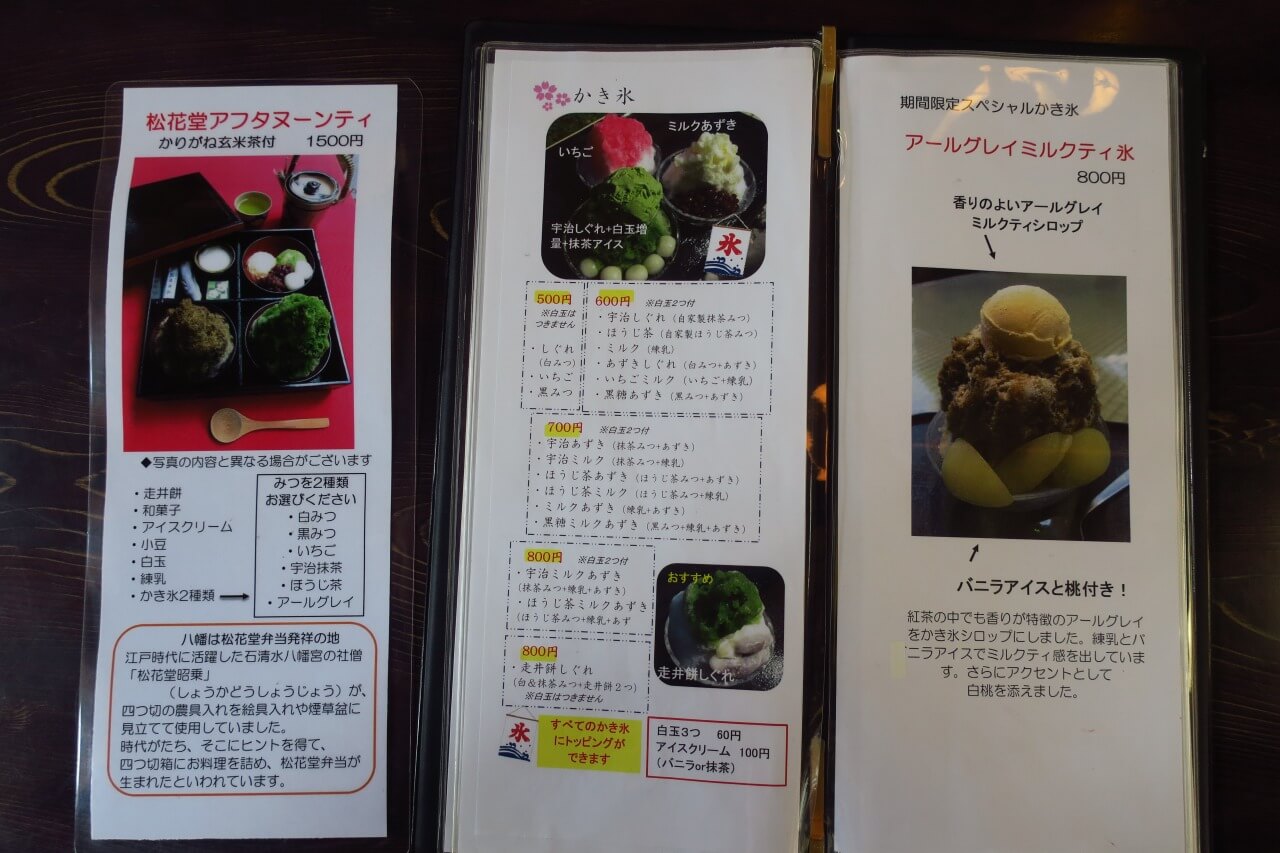 松花堂アフタヌーンティ
かりがね玄米茶付 1500円
◆写真の内容と異なる場合がございます
・走井餅
・和菓子
・アイスクリーム
・小豆
・白玉
・練乳
・かき氷2種類
みつを2種類
お選びください
・白みつ
・黒みつ
・いちご
・宇治抹茶
・ほうじ茶
・アールグレイ
八幡は松花堂弁当発祥の地
江戸時代に活躍した石清水八幡宮の社僧
「松花堂昭乗」
（しょうかどうしょうじょう）が、
四つ切の農具入れを絵具入れや煙草盆に
見立てて使用していました。
時代がたち、そこにヒントを得て、
四つ切箱にお料理を詰め、松花堂弁当が
生まれたといわれています。
かき氷
ミルクあずき
いちご
宇治しぐれ+白玉増
量+抹茶アイス
氷
500円
※白玉は
つきません
・しぐれ
（白みつ）
・いちご
・黒みつ
600円 ※白玉2つ付
・宇治しぐれ（自家製抹茶みつ）
・ほうじ茶（自家製ほうじ茶みつ）
・ミルク（練乳）
・あずきしぐれ（白みつ+あずき）
・いちごミルク（いちご+練乳）
・黒糖あずき（黒みつ+あずき）
700円 ※白玉2つ付
・宇治あずき（抹茶みつ+あずき）
・宇治ミルク（抹茶みつ+練乳）
・ほうじ茶あずき（ほうじ茶みつ+あずき）
・ほうじ茶ミルク（ほうじ茶みつ+練乳）
・ミルクあずき（練乳+あずき）
・黒糖ミルクあずき（黒みつ+練乳+あずき）
800円 ※白玉2つ付
・宇治ミルクあずき
（抹茶みつ+練乳+あずき）
・ほうじ茶ミルクあずき
（ほうじ茶みつ+練乳+あず
800円
・走井餅しぐれ
（白＆抹茶みつ+走井餅２つ）
※白玉はつきません
おすすめ
走井餅しぐれ
氷
すべてのかき氷
にトッピングが
できます
白玉3つ 60円
アイスクリーム 100円
（バニラor抹茶）
期間限定スペシャルかき氷
アールグレイミルクティ氷
800円
香りのよいアールグレイ
ミルクティシロップ
バニラアイスと桃付き！
紅茶の中でも香りが特徴のアールグレイ
をかき氷シロップにしました。練乳とバ
ニラアイスでミルクティ感を出していま
す。さらにアクセントとして
白桃を添えました。